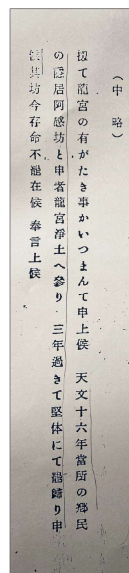 (中略)
扨て龍宮の有がたき事かいつまんて申上侯　天文十六年當所の鄕民
の隱居阿感坊と申者龍宮淨土へ參り、三年過きて堅体にて過歸り申
其坊今存命不罷在侯　奉言上侯